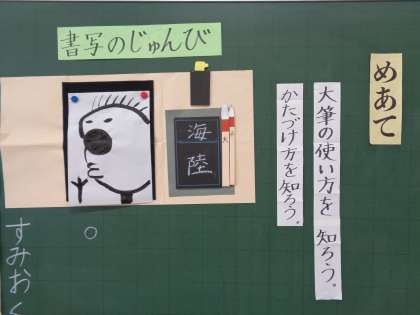 書写のじゅんび
めあて
大筆の使い方を 知ろう。
かたづけ方を知ろう。
海
陸
大
すみおく